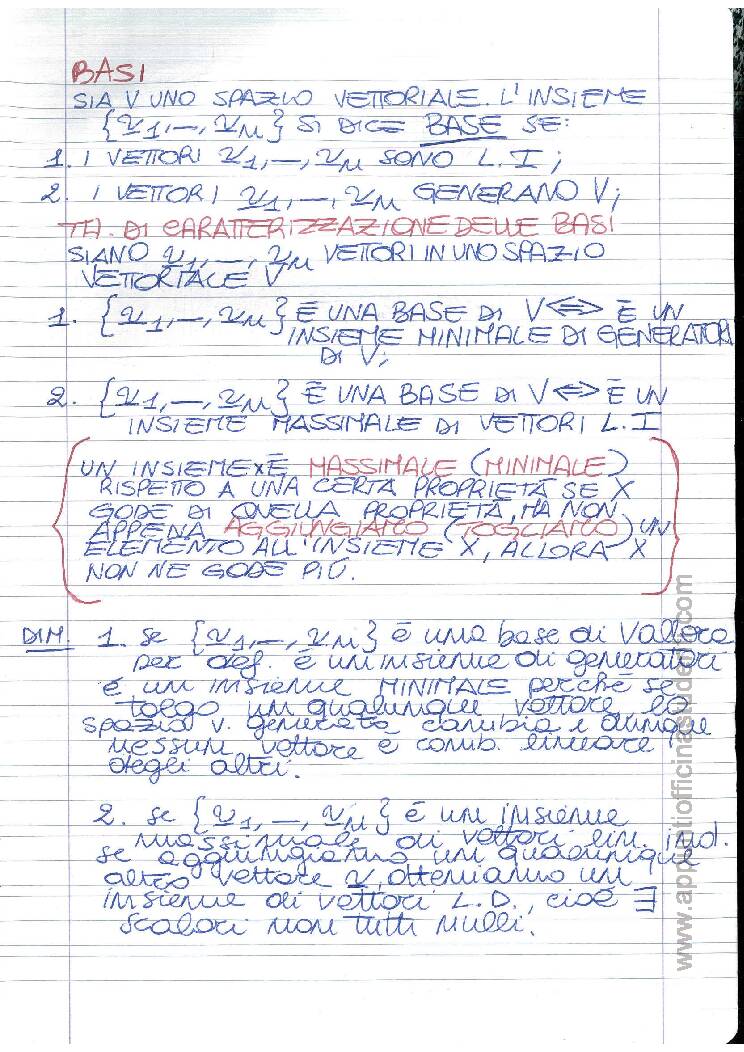 BASI
SIA V UNO SPAZIO VETTORIALE. L'INSIEME
{v1,—,vn} SI DICE BASE SE:
1. I VETTORI v1,—,vn SONO L.I;
2. I VETTORI v1,—,vn GENERANO V;
TH. DI CARATTERIZZAZIONE DELLE BASI
SIANO v1,—,vn VETTORI IN UNO SPAZIO
VETTORIALE V
1. {v1,—,vn} È UNA BASE DI V <=> È UN
INSIEME MINIMALE DI GENERATORI
DI V;
2. {v1,—,vn} È UNA BASE DI V <=> È UN
INSIEME MASSIMALE DI VETTORI L.I
UN INSIEME X È MASSIMALE (MINIMALE)
RISPETTO A UNA CERTA PROPRIETÀ SE X
GODE DI QUELLA PROPRIETÀ, MA NON
APPENA AGGIUNGIAMO (TOGLIAMO) UN
ELEMENTO ALL'INSIEME X, ALLORA X
NON NE GODE PIÙ.
DIM. 1. se {v1,—,vn} è una base di V allora
per def. è un insieme di generatori
è un insieme MINIMALE perché se
tolgo un qualunque vettore lo
spazio v. generato cambia e dunque
nessun vettore è comb. lineare
degli altri.
2. se {v1,—,vn} è un insieme
massimale di vettori lin. ind.
se aggiungiamo un qualunque
altro vettore v, otteniamo un
insieme di vettori L.D., cioè ∃
scalari non tutti nulli.
www.appuntiofficinastudenti.com